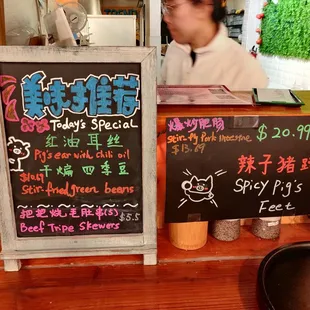 美味推荐
Today's Special
红油耳丝
Pig's ear with chili oil
干煸四季豆
Stir-fried green beans
Beef Tripe Skewers
$5.5
爆炒肥肠
stir-fry Pork Intestine
$20.99
辣子猪
Spicy Pig's
Feet